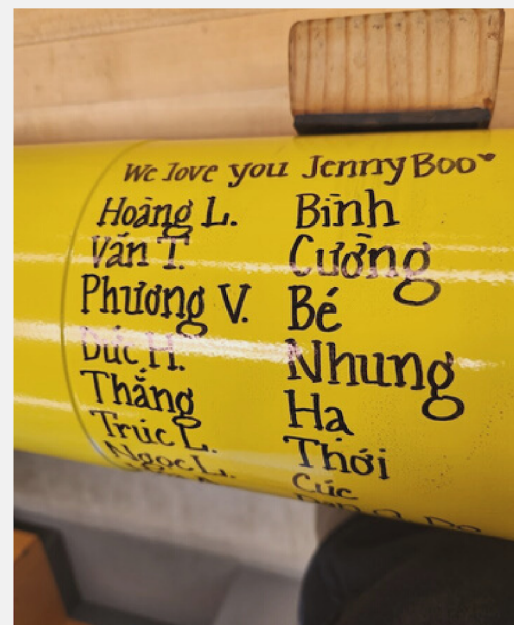 We love you Jenny Boo
Hoàng L.
Văn T.
Phương V.
Đức H.
Thắng
Trúc L.
Ngọc L.
Bình
Cường
Bé
Nhung
Hạ
Thới
Cúc